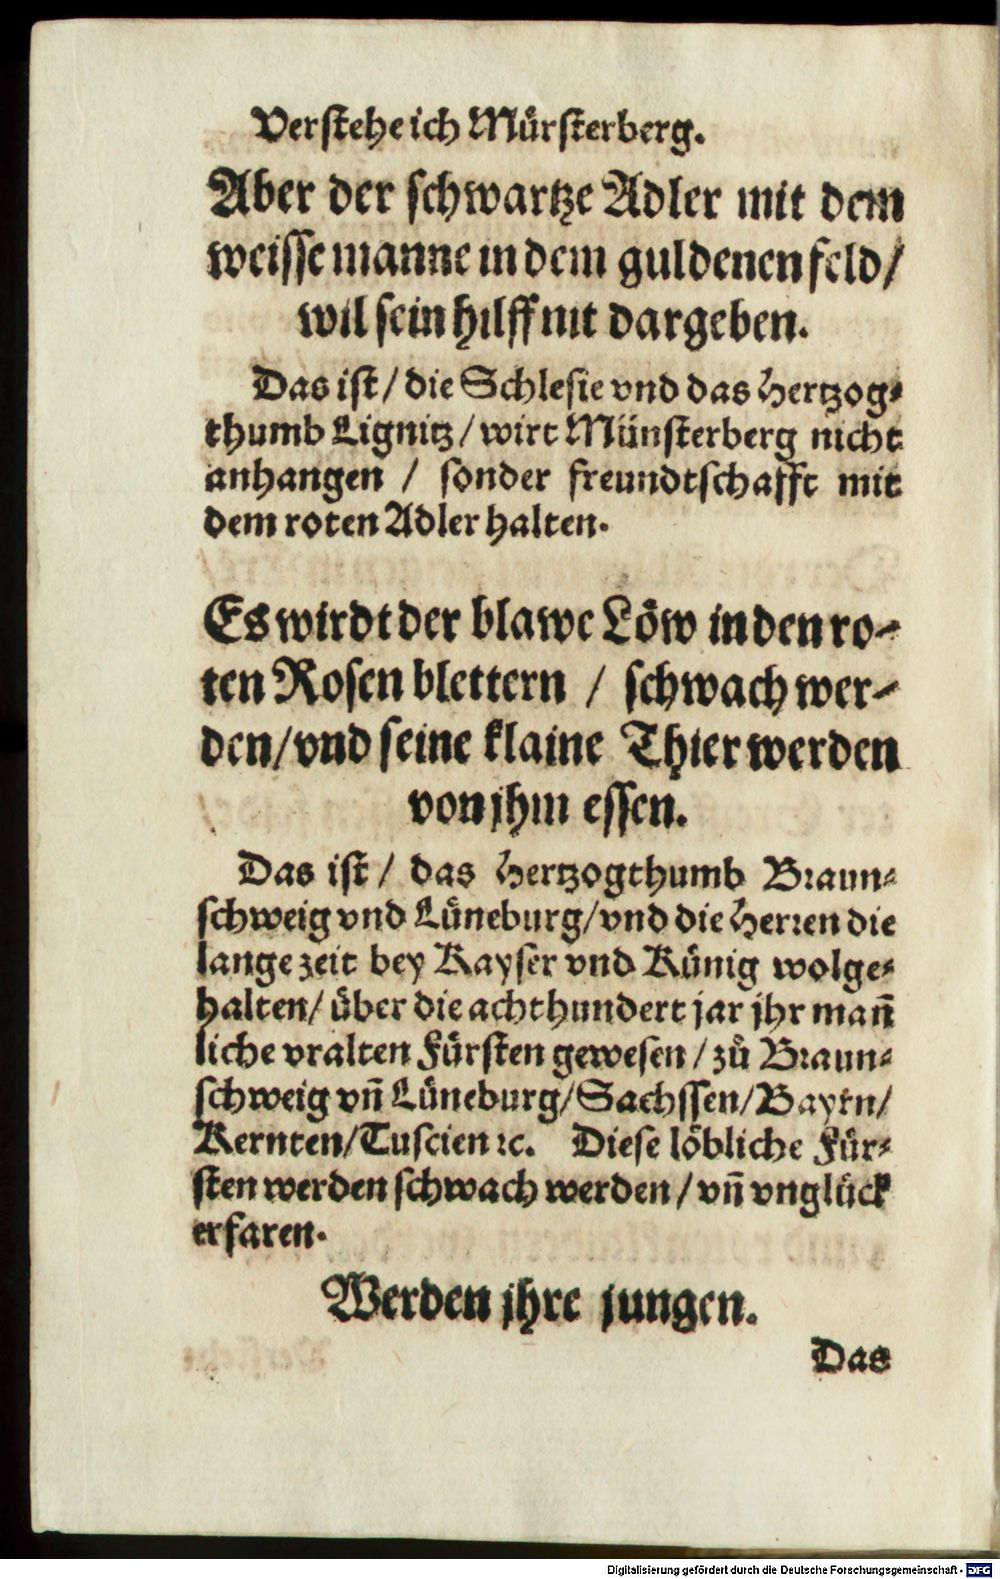 Verstehe ich Mürsterberg.
Aber der schwartze Adler mit dem
weisse manne in dem guldenen feld/
wil sein hilff nit dargeben.
Das ist/ die Schlesie vnd das Hertzog-
thumb Lignitz/ wirt Münsterberg nicht
anhangen / sonder freundtschafft mit
dem roten Adler halten.
Es wirdt der blawe Löw in den ro-
ten Rosen blettern / schwach wer-
den/ vnd seine klaine Thier werden
von jhm essen.
Das ist/ das Hertzogthumb Braun-
schweig vnd Lüneburg/ vnd die Herren die
lange zeit bey Kayser vnd Künig wolge-
halten/ über die achthundert jar jhr mañ
liche vralten Fürsten gewesen / zů Braun-
schweig vñ Lüneburg/ Sachssen/ Bayrn/
Kernten/ Tuscien ꝛc. Diese löbliche Für-
sten werden schwach werden / vñ vnglück
erfaren.
Werden jhre jungen.
Das
Digitalisierung gefördert durch die Deutsche Forschungsgemeinschaft - DFG